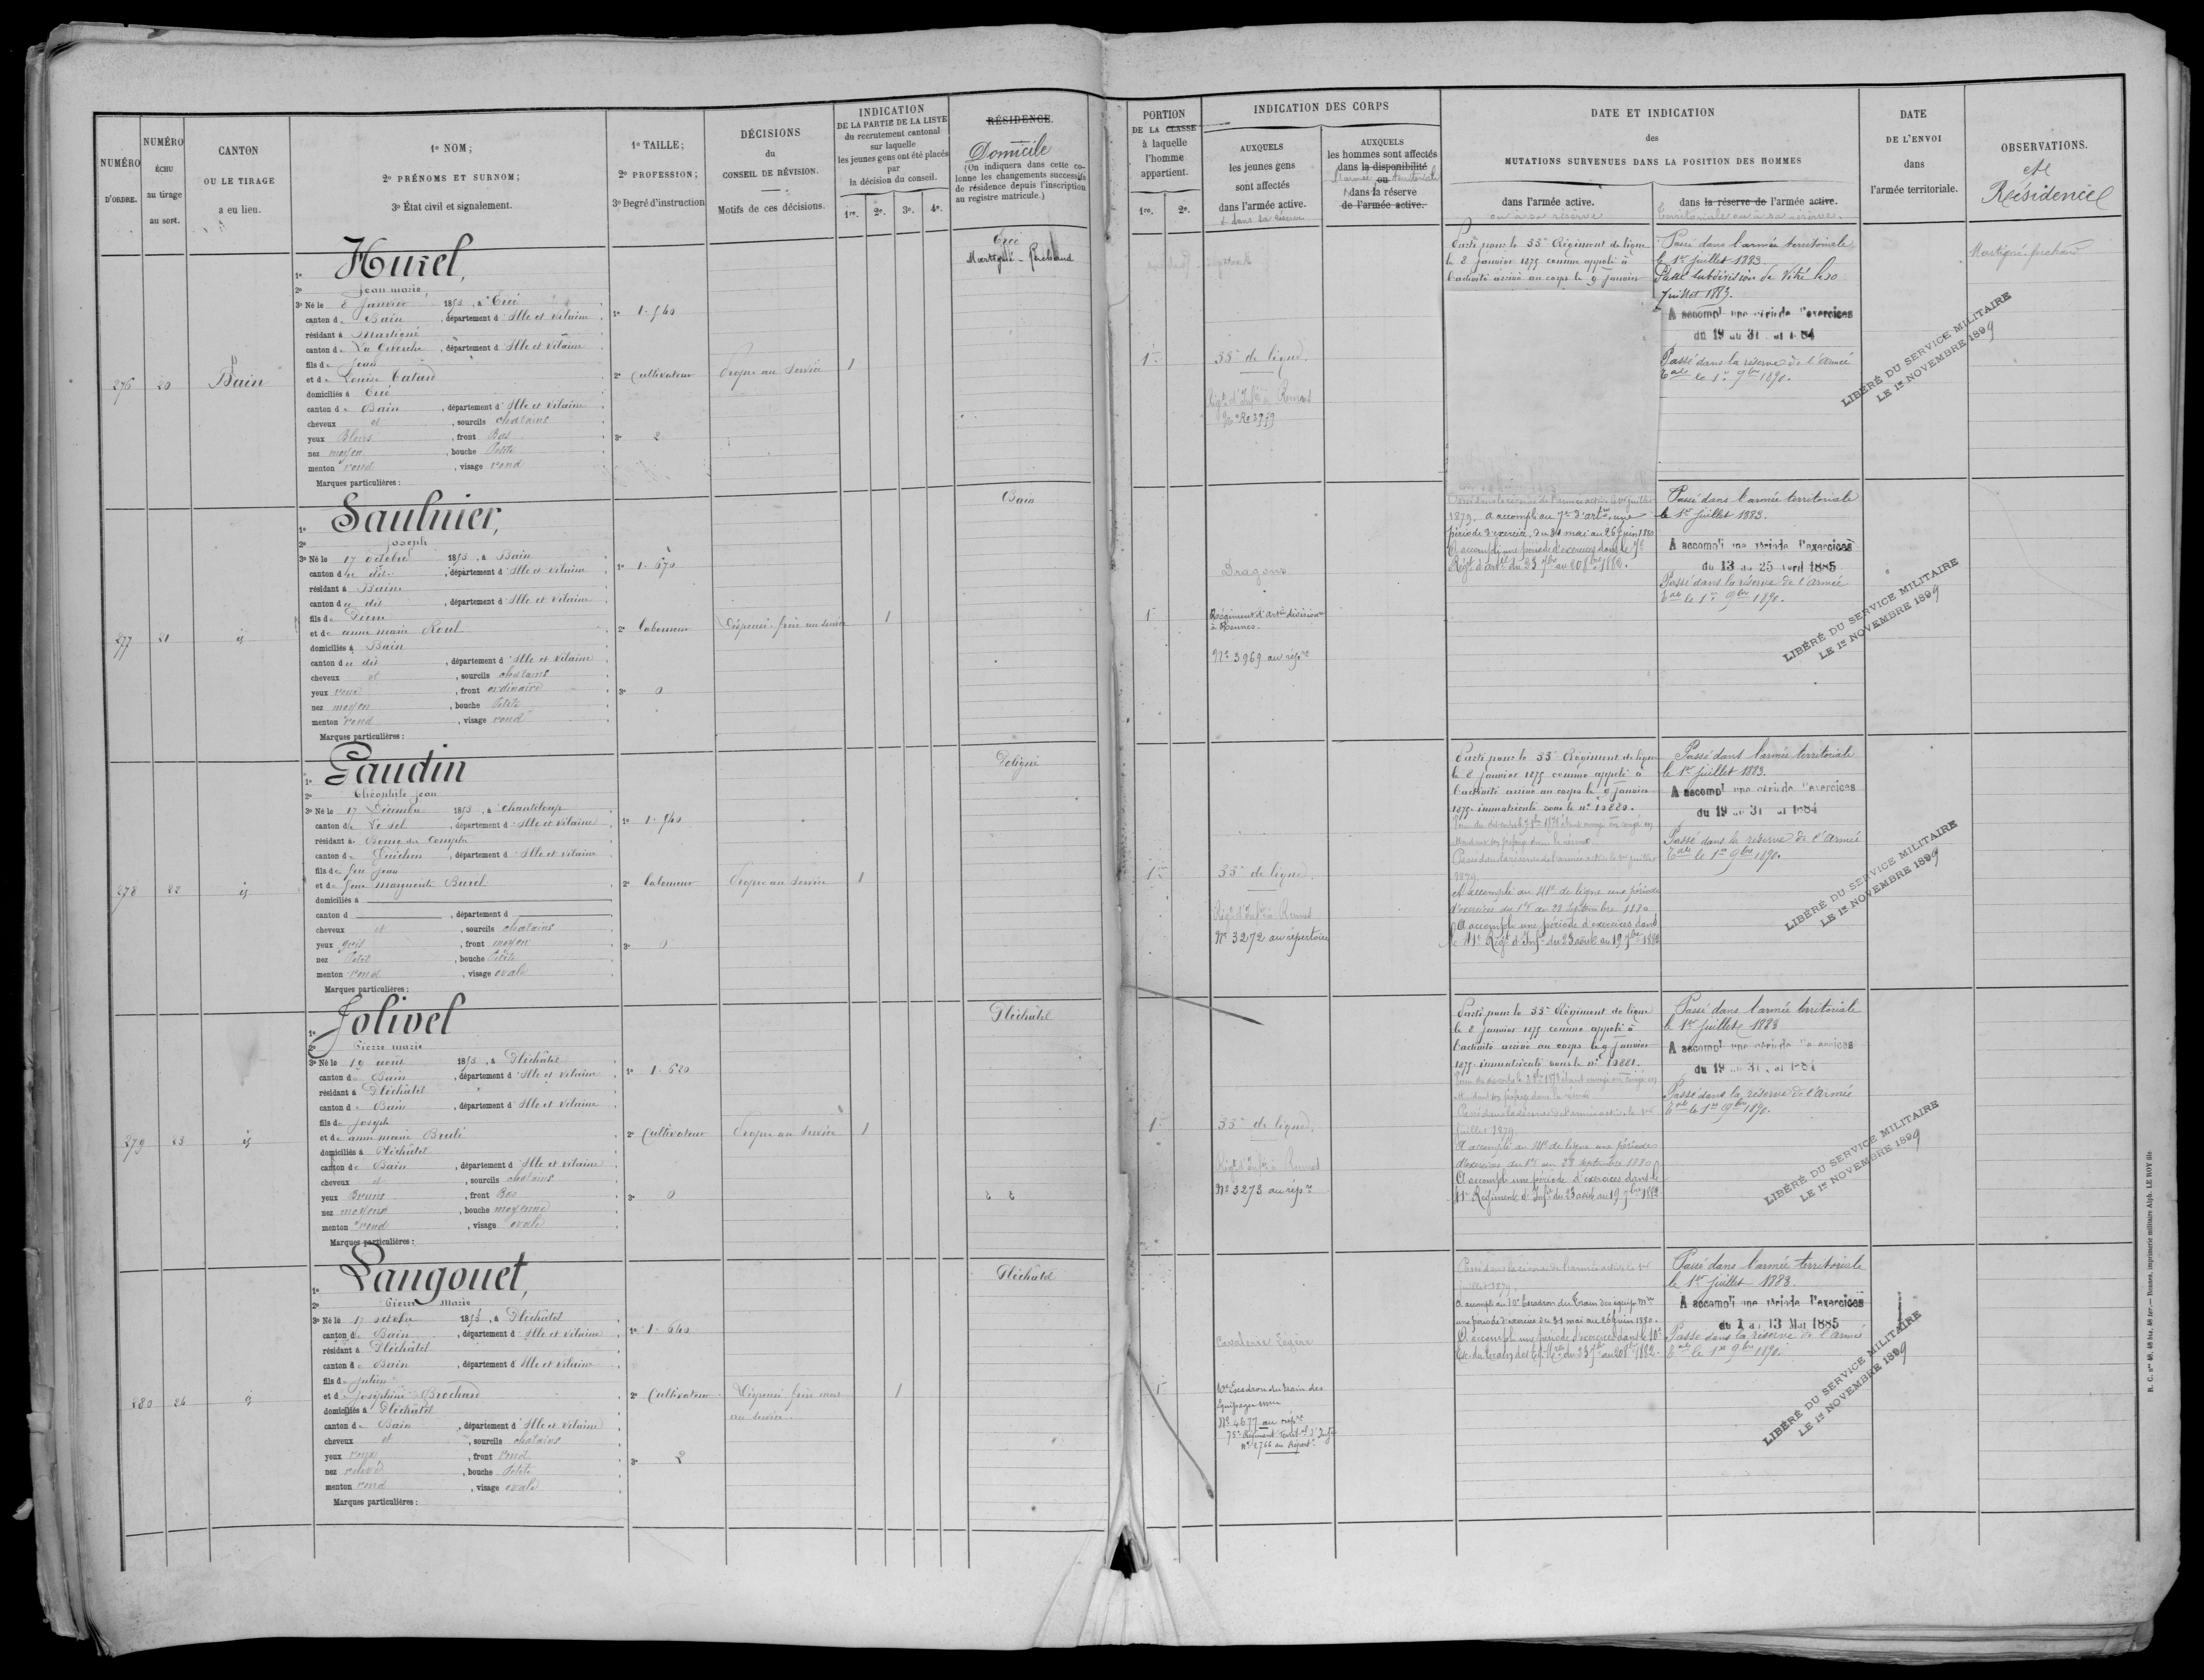 NUMÉRO D'ORDRE.
NUMÉRO ÉCHU au tirage au sort.
CANTON OU LE TIRAGE a eu lieu.
1º NOM;
2º PRÉNOMS ET SURNOM;
3º État civil et signalement.
1º TAILLE;
2º PROFESSION;
3º Degré d'instruction
DÉCISIONS
du
CONSEIL DE RÉVISION.
Motifs de ces décisions.
INDICATION
DE LA PARTIE DE LA LISTE
du recrutement cantonal
sur laquelle
les jeunes gens ont été placés
par
la décision du conseil.
1re. 2e. 3e. 4e.
RÉSIDENCE.
Domicile
(On indiquera dans cette colonne les changements successifs de résidence depuis l'inscription au registre matricule.)
PORTION
DE LA CLASSE
à laquelle
l'homme
appartient.
1re. 2e.
INDICATION DES CORPS
AUXQUELS
les jeunes gens
sont affectés
dans l'armée active.
& dans sa réserve
AUXQUELS
les hommes sont affectés
dans la disponibilité
ou
dans la réserve
de l'armée active.
DATE ET INDICATION
des
MUTATIONS SURVENUES DANS LA POSITION DES HOMMES
dans l'armée active.
ou à sa réserve
dans la réserve de l'armée active.
territoriale ou à sa réserve.
DATE
DE L'ENVOI
dans
l'armée territoriale.
OBSERVATIONS.
et
Résidence
276
20
Bain
1º Hurel,
2º Jean marie
3º Né le 8 Janvier 1853, à Ercé
canton de Bain, département d'Ille et Vilaine
résidant à Martigné
canton de La Guerche, département d'Ille et Vilaine
fils de Jean
et de Louise
domiciliés à Ercé
canton de Bain, département d'Ille et Vilaine
cheveux et, sourcils chatains
yeux Bleus, front Bas
nez moyen, bouche Petite
menton rond, visage rond
Marques particulières:
1º 1.540
2º Cultivateur
3º 2
Propre au service
1
Ercé
Martigné-Ferchaud
1
35e de ligne.
Régt d'Infie à Rennes
Parti pour le 35e Régiment de ligne
le 8 janvier 1875 comme appelé à
l'activité arrivé au corps le 9 janvier
Passé dans l'armée territoriale
le 1er juillet 1883.
Passé subdivision de Vitré le 20
juillet 1883.
A accompli une période d'exercices
du 19 au 31 1884
Passé dans la réserve de l'Armée
Tale le 1er 9bre 1890.
LIBÉRÉ DU SERVICE MILITAIRE
LE 1er NOVEMBRE 1899
Martigné-ferchaud
277
21
id
1º Saulnier,
2º Joseph
3º Né le 17 octobre 1853, à Bain
canton du dit, département d'Ille et Vilaine
résidant à Bain
canton du dit, département d'Ille et Vilaine
fils de Pierre
et de anne marie Roul
domiciliés à Bain
canton du dit, département d'Ille et Vilaine
cheveux et, sourcils chatains
yeux roux, front ordinaire
nez moyen, bouche Petite
menton rond, visage rond
Marques particulières:
1º 1.670
2º laboureur
3º 0
Dispensé frère au service
1
Bain
1
Dragons
Régiment d'artie divisionre
à Rennes.
No 3969 au répre
Passé dans la réserve de l'armée active le 1er juillet
1879. a accompli au 7e d'artie une
période d'exercice, du 31 mai au 26 juin 1880
A accompli une période d'exercices dans le 7e
Régt d'artie du 23 7bre au 20 8bre 1882.
Passé dans l'armée territoriale
le 1er juillet 1883.
A accompli une période d'exercices
du 13 au 25 avril 1885
Passé dans la réserve de l'Armée
Tale le 1er 9bre 1890.
LIBÉRÉ DU SERVICE MILITAIRE
LE 1er NOVEMBRE 1899
278
22
id
1º Gaudin
2º Théophile jean
3º Né le 17 Décembre 1853, à Chanteloup
canton de Le sel, département d'Ille et Vilaine
résidant à Bourg des Comptes
canton de Guichen, département d'Ille et Vilaine
fils de feu Jean
et de feue Marguerite Burel
domiciliés à
canton d, département d
cheveux et, sourcils chatains
yeux gris, front moyen
nez Petit, bouche Petite
menton rond, visage ovale
Marques particulières:
1º 1.540
2º laboureur
3º 0
Propre au service
1
Poligné
1
35e de ligne.
Régt d'Infie à Rennes
No 3272 au répertoire
Parti pour le 35e Régiment de ligne
le 8 janvier 1875 comme appelé à
l'activité arrivé au corps le 9 janvier
1875 immatriculé sous le no 10880.
Passé dans la réserve de l'armée active le 1er juillet
1879.
A accompli au 41e de ligne une période
d'exercices du 1er au 28 septembre 1880
A accompli une période d'exercices dans
le 41e Régt d'Infie du 23 août au 19 7bre 1882
Passé dans l'armée territoriale
le 1er juillet 1883.
A accompli une période d'exercices
du 19 au 31 1884
Passé dans la réserve de l'Armée
Tale le 1er 9bre 1890.
LIBÉRÉ DU SERVICE MILITAIRE
LE 1er NOVEMBRE 1899
279
23
id
1º Jolivel
2º Pierre marie
3º Né le 19 août 1853, à Pléchâtel
canton de Bain, département d'Ille et Vilaine
résidant à Pléchâtel
canton de Bain, département d'Ille et Vilaine
fils de Joseph
et de anne marie
domiciliés à Pléchâtel
canton de Bain, département d'Ille et Vilaine
cheveux et, sourcils chatains
yeux Bruns, front Bas
nez moyen, bouche moyenne
menton rond, visage ovale
Marques particulières:
1º 1.620
2º Cultivateur
3º 0
Propre au service
1
Pléchâtel
1
35e de ligne.
Régt d'Infie à Rennes
No 3273 au répre
Parti pour le 35e Régiment de ligne
le 8 janvier 1875 comme appelé à
l'activité arrivé au corps le 9 janvier
1875 immatriculé sous le no 10881.
Passé dans la réserve de l'armée active le 1er
juillet 1879.
A accompli au 41e de ligne une période
d'exercices du 1er au 28 septembre 1880
A accompli une période d'exercices dans le
41e Régiment d'Infie du 23 août au 19 7bre 1882
Passé dans l'armée territoriale
le 1er juillet 1883
A accompli une période d'exercices
du 19 au 31 1884
Passé dans la réserve de l'Armée
Tale le 1er 9bre 1890.
LIBÉRÉ DU SERVICE MILITAIRE
LE 1er NOVEMBRE 1899
280
24
id
1º Langouet,
2º Pierre Marie
3º Né le 17 octobre 1853, à Pléchâtel
canton de Bain, département d'Ille et Vilaine
résidant à Pléchâtel
canton de Bain, département d'Ille et Vilaine
fils de Julien
et de Joséphine Brochard
domiciliés à Pléchâtel
canton de Bain, département d'Ille et Vilaine
cheveux et, sourcils chatains
yeux roux, front rond
nez relevé, bouche Petite
menton rond, visage ovale
Marques particulières:
1º 1.640
2º Cultivateur
3º 2
Dispensé frère mort
au service.
1
Pléchâtel
1
Cavalerie Légère
10e Escadron du train des
Équipages mres
No 4677 au répre
75e Régiment Territal d'Infie
No 2766 au Répertre
Passé dans la réserve de l'armée active le 1er
juillet 1879.
A accompli au 10e Escadron du Train des équip. mres
une période d'exercice du 31 mai au 26 juin 1880.
A accompli une période d'exercices dans le 10e
Esc. du train des Eq. Mres du 23 7bre au 20 8bre 1882.
Passé dans l'armée territoriale
le 1er juillet 1883.
A accompli une période d'exercices
du 1 au 13 Mai 1885
Passé dans la réserve de l'Armée
Tale le 1er 9bre 1890.
LIBÉRÉ DU SERVICE MILITAIRE
LE 1er NOVEMBRE 1899
R. C. nos 48, 48 bis, 48 ter. — Rennes, imprimerie militaire Alph. LE ROY fils